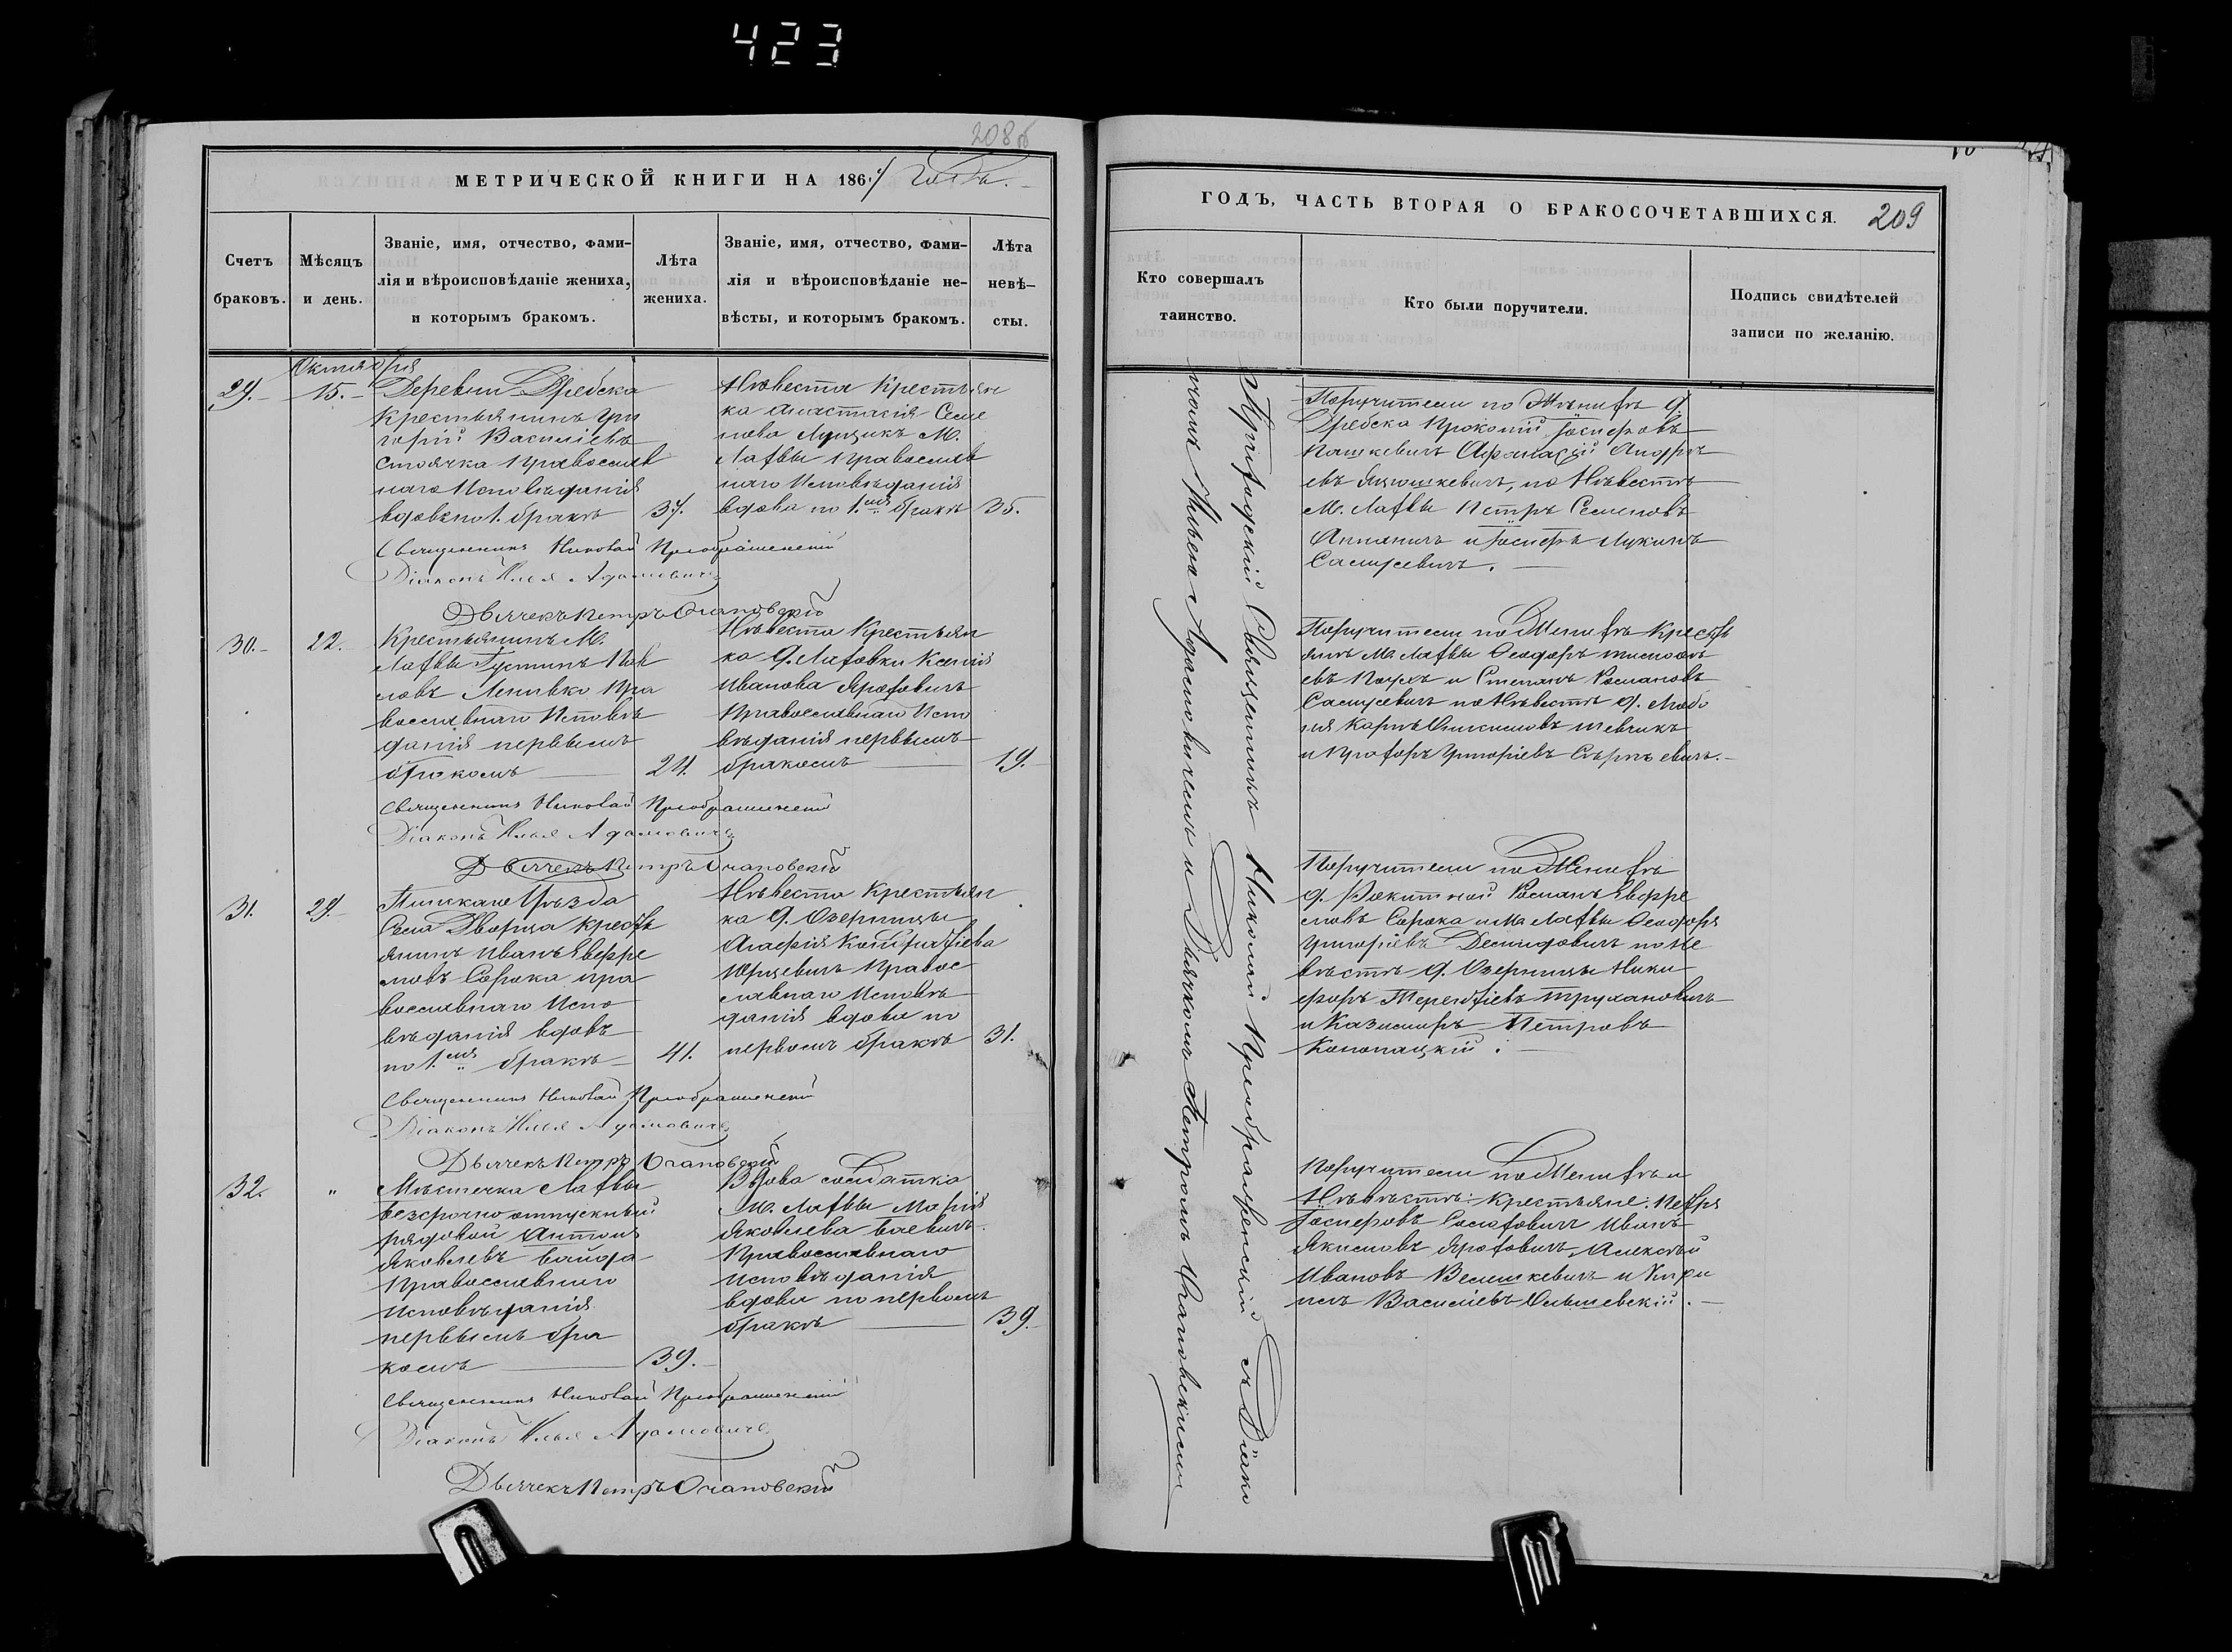 423
208об
МЕТРИЧЕСКОЙ КНИГИ НА 186 года.
Счетъ
браковъ.
Мѣсяцъ
и день.
Званіе, имя, отчество, фами-
лія и вѣроисповѣданіе жениха,
и которымъ бракомъ.
Лѣта
жениха.
Званіе, имя, отчество, фами-
лія и вѣроисповѣданіе не-
вѣсты, и которымъ бракомъ.
Лѣта
невѣ-
сты.
Октября
29. 15.
Деревни Дребска
Крестьянинъ Гри
горій Василіевъ
Стоячка Православ
наго Исповѣданія
вдовъ по 1. бракѣ 37.
Невѣста Крестьян
ка Анастасія Семе
нова Луцикъ М.
Лахвы Православ
наго Исповѣданія
вдова по 1.мъ бракѣ 35.
Священникъ Николай Преображенскій
Діаконъ Илья Адамовичъ
Дьячекъ Петръ Очаповскій
30. 22.
Крестьянинъ М.
Лахвы Густинъ Пав
ловъ Ленивко Пра
вославнаго Исповѣ
данія первымъ
бракомъ 24.
Невѣста Крестьян
ка д. Лаховки Ксенія
Иванова Яроховичъ
Православнаго Испо
вѣданія первымъ
бракомъ 19.
Священникъ Николай Преображенскій
Діаконъ Илья Адамовичъ
Дьячекъ Петръ Очаповскій
31. 29.
Пинскаго Уѣзда
Села Дворца Кресть
янинъ Иванъ Евфре
мовъ Сорока пра
вославнаго Испо
вѣданія вдовъ
по 1.мъ бракѣ 41.
Невѣста Крестьян
ка д. Озерницы
Агафія Кондратіева
Юрцевичъ Правос
лавнаго Исповѣ
данія вдова по
первомъ бракѣ 31.
Священникъ Николай Преображенскій
Діаконъ Илья Адамовичъ
Дьячекъ Петръ Очаповскій
32. "
Мѣстечка Лахвы
безсрочно отпускный
рядовой Антонъ
Яковлевъ Вайда
Православнаго
Исповѣданія
первымъ бра
комъ 39.
Вдова солдатка
М. Лахвы Марія
Яковлева Баевичъ
Православнаго
Исповѣданія
вдова по первомъ
бракѣ 39.
Священникъ Николай Преображенскій
Діаконъ Илья Адамовичъ
Дьячекъ Петръ Очаповскій
ГОДЪ, ЧАСТЬ ВТОРАЯ О БРАКОСОЧЕТАВШИХСЯ. 209
Кто совершалъ
таинство.
Кто были поручители.
Подпись свидѣтелей
записи по желанію.
Приходскій Священникъ Николай Преображенскій съ Діако
номъ Ильею Адамовичемъ и Дьячкомъ Петромъ Очаповскимъ
Поручители по Женихѣ д.
Дребска Прокопій Іосифовъ
Пашкевичъ Афанасій Андре
евъ Яцюшкевичъ, по Невѣстѣ
М. Лахвы Петръ Семеновъ
и Іосифъ Лукинъ
Поручители по Женихѣ Кресть
янъ М. Лахвы Феодоръ Тимофе
евъ и Степанъ Романовъ
по Невѣстѣ д. Любо
ня Карпъ Шевчикъ
и Прохоръ Григоріевъ
Поручители по Женихѣ
д. Ракитной Романъ Евфре
мовъ Сорока и М. Лахвы Феодоръ
Григоріевъ Демидовичъ по Не
вѣстѣ д. Озерницы Ники
форъ Терентіевъ Трухановичъ
и Казимиръ Петровъ
Конопацкій.
Поручители по Женихѣ и
Невѣстѣ: Крестьяне: Петръ
Іосифовъ Иванъ
Якимовъ Ярохович, Алексѣй
Ивановъ Велишкевичъ и Кири
лъ Василіевъ Ольшевскій.